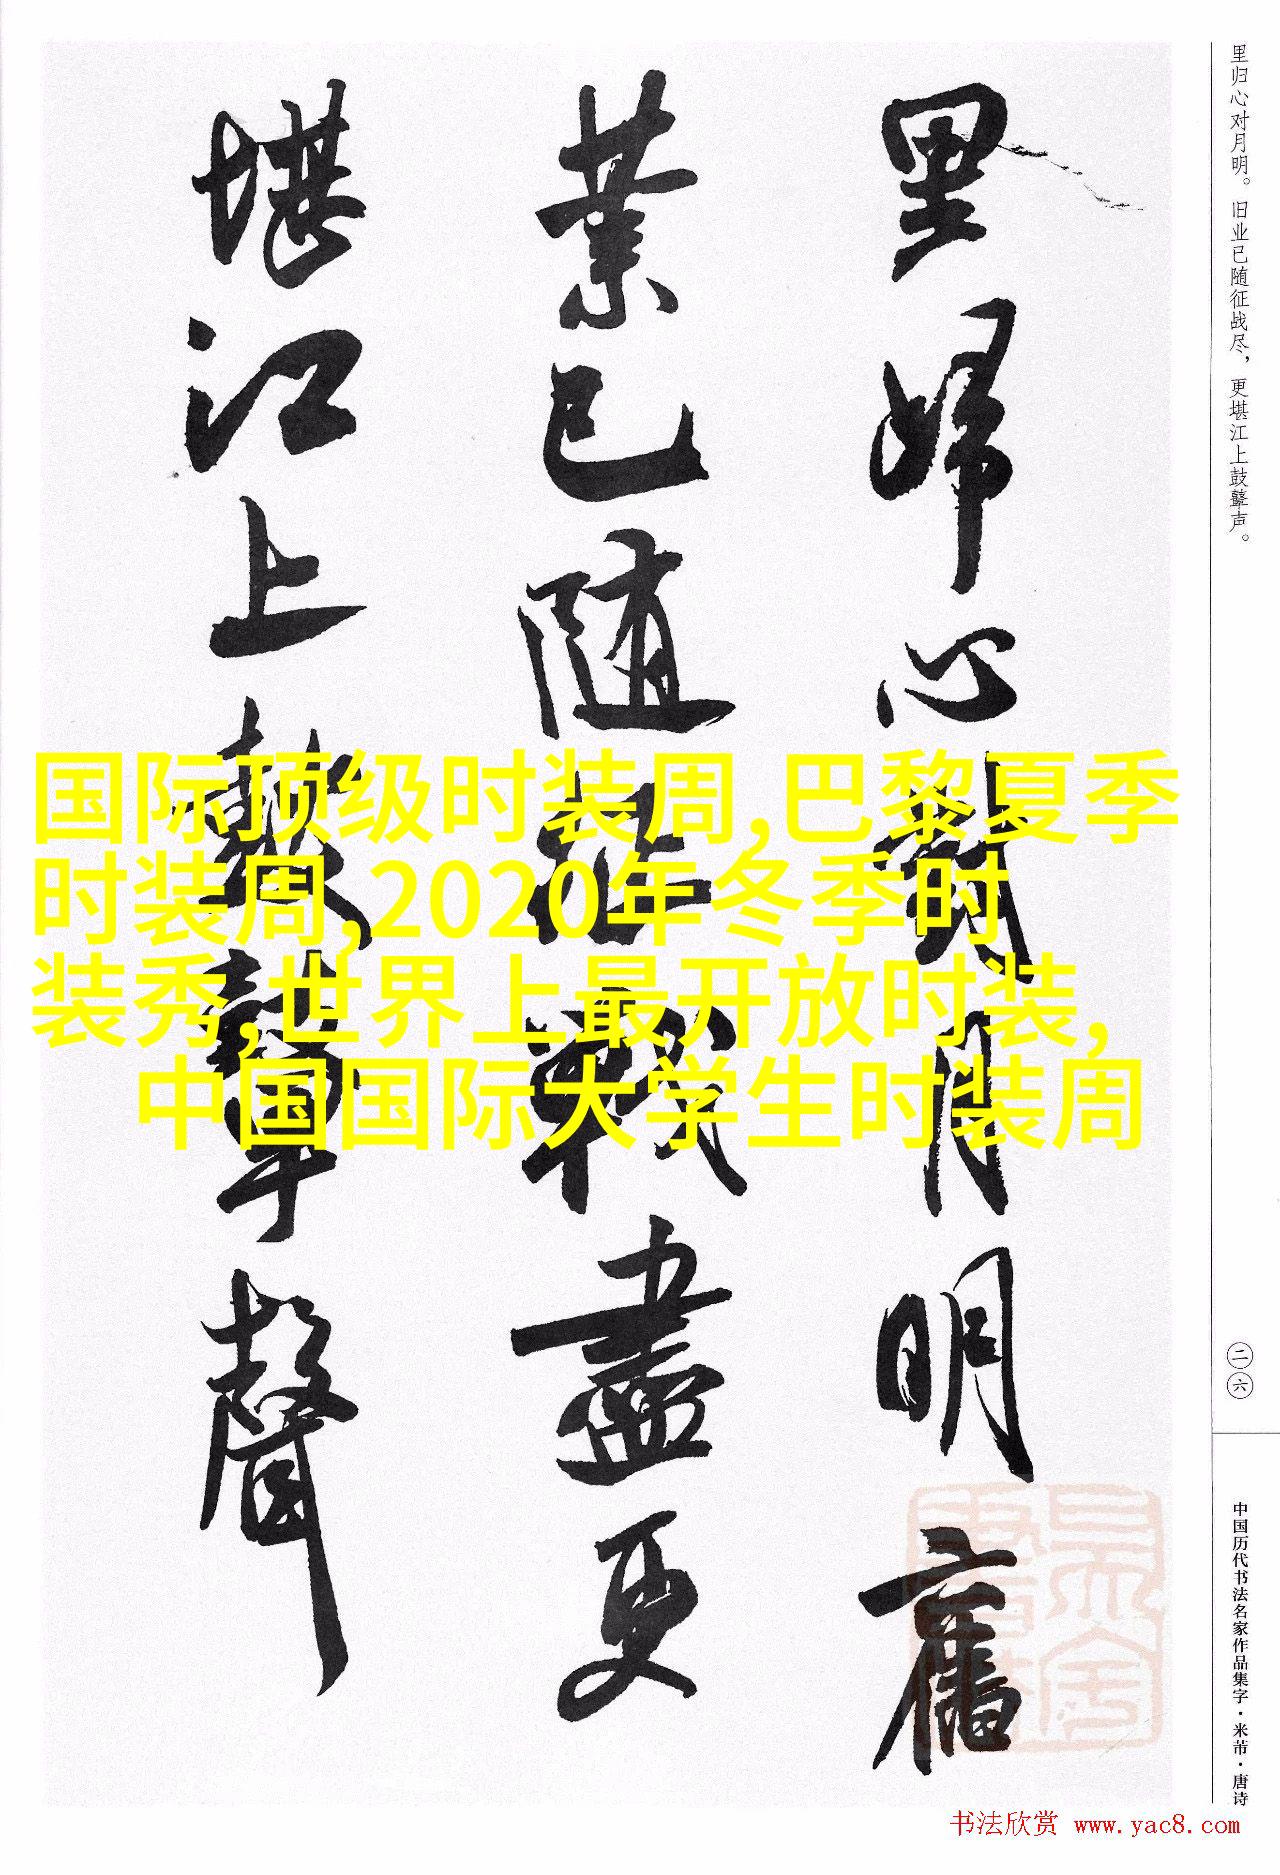 里归心对月明。旧业已随征战尽，更堪江上鼓鼙声。
里歸心對月明舊
業已隨征戰盡更
堪江上鼓鼙聲
国际顶级时装周,巴黎夏季
时装周,2020年冬季时
装秀,世界上最开放时装,
中国国际大学生时装周
二六
中国历代书法名家作品集字·米芾·唐诗
书法欣赏 www.yac8.com